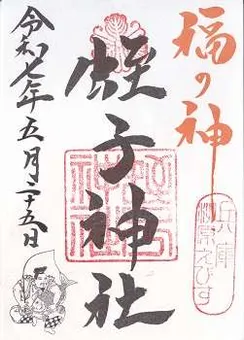 福の神
兵庫
柳原えびす
蛭子神社
令和七年五月二十五日